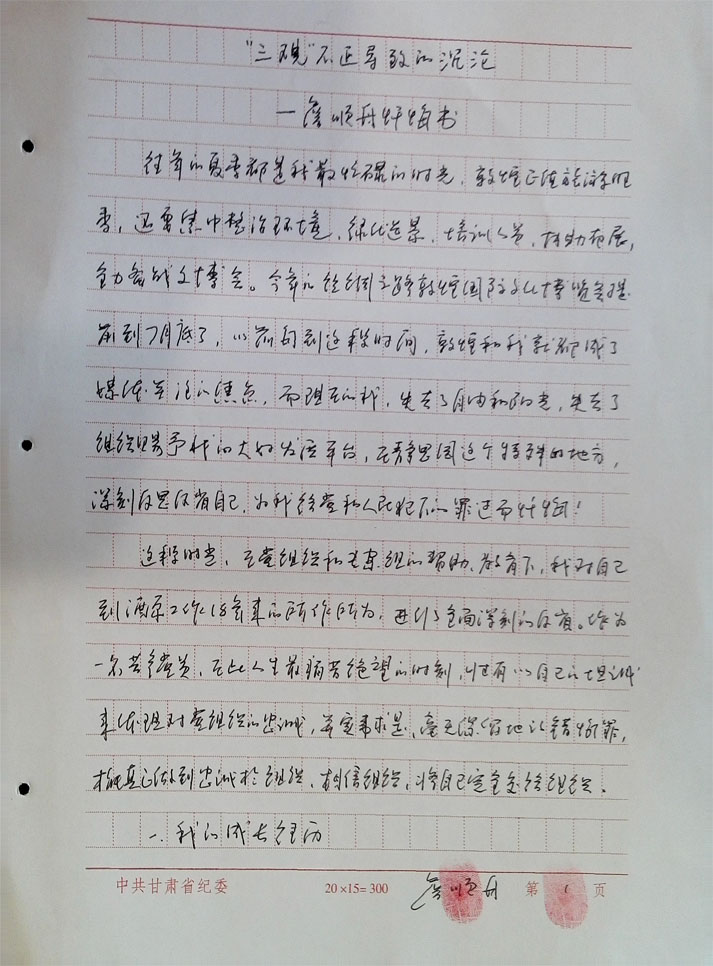 “三观”不正导致的沉沦
—詹顺舟忏悔书
往年的夏季都是我最忙碌的时光，敦煌正值旅游旺
季，还要集中整治环境，绿化造景，培训人员，布展，
全力备战文博会。今年的丝绸之路敦煌国际文化博览会提
前到7月底了，以前的到这段时间，敦煌和我就都成了
媒体关注的焦点，而现在的我，失去了自由和阳光，失去了
组织赐予我的大好发活平台，在静思园这个特殊的地方，
深刻反思反省自己，为我给党和人民犯下的罪过而忏悔！
这段时光，在党组织和专案组的帮助、教育下，我对自己
到酒泉工作18年来的所作所为，进行了全面深刻的反省。作为
一名共产党员，在此人生最痛苦绝望的时刻，惟有以自己的坦诚
来体现对党组织的忠诚，实事求是、毫无保留地认错悔罪，
才能真正做到忠诚于组织、相信组织，将自己完全交给组织。
一、我的成长经历
中共甘肃省纪委 20×15=300 詹顺舟 第 1 页